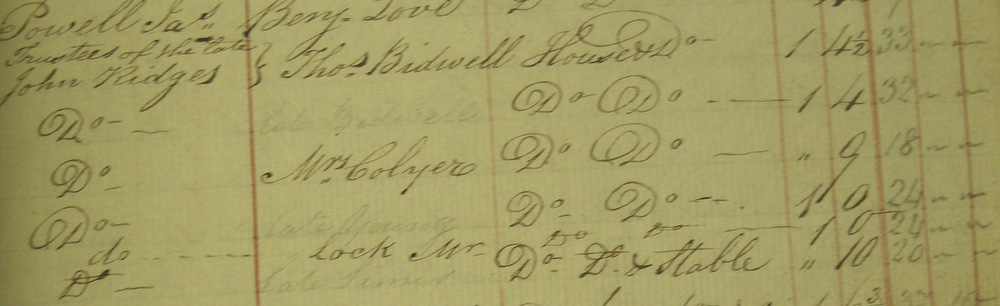 Powell Jas. Benj. Love Do Do
Trustees of the late
John Ridges } Thos. Bidwell House &c Do 1 4½ 33 " "
Do — late Bidwell Do Do — 1 4 32 " "
Do Mrs. Colyer Do Do — " 9 18 " "
Do late Young Do Do — . 1 0 24 " "
do ---- Lock Mr Do Do — 1 0 24 " "
Do — late Do Do & Stable " 10 20 " "